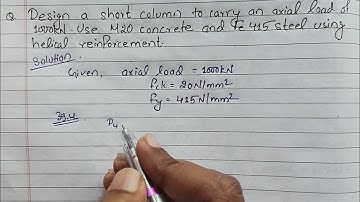 Q Design a short column to carry an axial load of
1000kN. Use M20 concrete and Fe 415 steel using
helical reinforcement.
Solution
Given, axial load = 1000kN
fck = 20N/mm²
fy = 415N/mm²
39.4 Pu